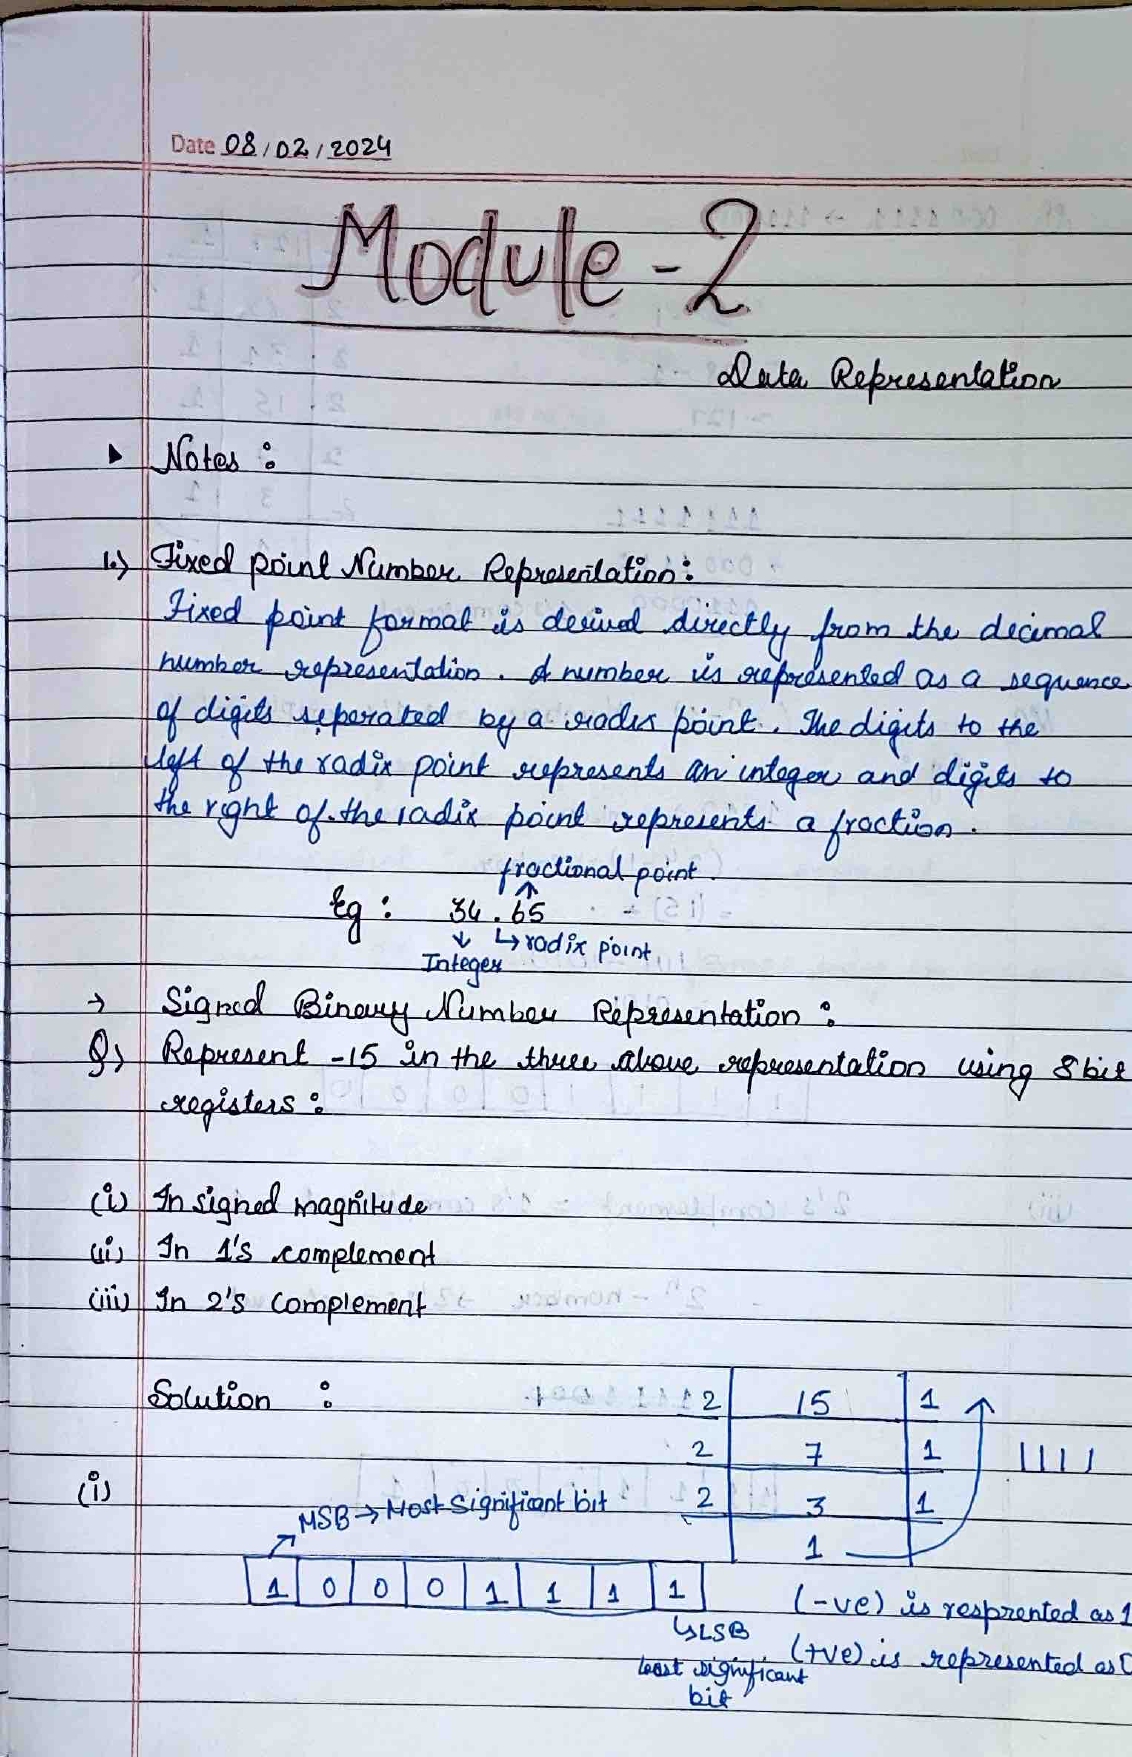 Date 08/02/2024
Module-2
Data Representation
Notes :
1.) Fixed point Number Representation:
Fixed point format is derived directly from the decimal
number representation. A number is represented as a sequence
of digits seperated by a radix point. The digits to the
left of the radix point represents an integer and digits to
the right of the radix point represents a fraction.
fractional point
Eg : 34.65
↳ radix point
Integer
→ Signed Binary Number Representation :
Q) Represent -15 in the three above representation using 8 bit
registers :
(i) In signed magnitude
(ii) In 1's complement
(iii) In 2's complement
Solution :
2 15 1
2 7 1 1111
(i)
2 3 1
MSB → Most Significant bit
1
1 0 0 0 1 1 1 1
(-ve) is resprented as 1
↳ LSB
(+ve) is represented as 0
least significant
bit